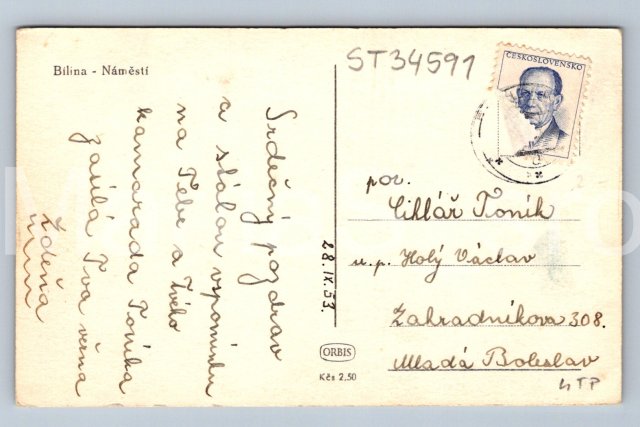 Bílina - Náměstí
ST34591
ČESKOSLOVENSKO
Srdečný pozdrav
a stálou vzpomínku
na Tebe a Tvého
kamaráda Toníka
zasílá Tvá věrná
Zdena
28.IX.53.
ORBIS
Kčs 2,50
Toník
u.p. Holý Václav
Zahradníkova 308.
Mladá Boleslav